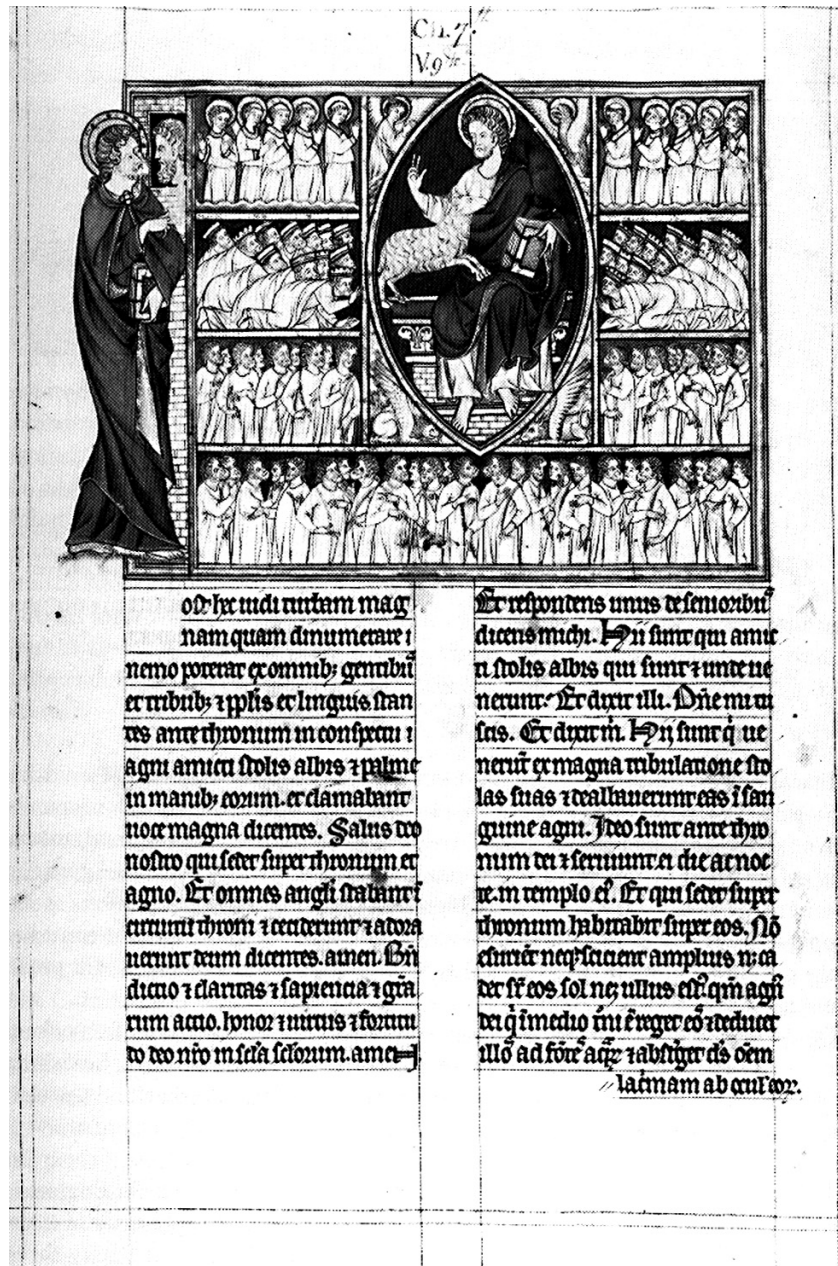 Ch. 7.
V. 9
ost hec uidi turbam mag
nam quam dinumerare
nemo poterat ex omnibꝫ gentibꝰ
et tribubꝫ ⁊ pplis et linguis stan
tes ante thronum in conspectu
agni amicti stolis albis ⁊ palme
in manibꝫ eorum. et clamabant
uoce magna dicentes. Salus deo
nostro qui sedet super thronum et
agno. Et omnes angli stabant
circuitu throni ⁊ ceciderunt ⁊ adora
uerunt deum dicentes. amen. Bn̄
dictio ⁊ claritas ⁊ sapiencia ⁊ gr̄a
rum actio. honor ⁊ uirtus ⁊ fortitu
do deo nr̄o in sc̄la sc̄lorum. amen
Et respondens unus de senioribꝰ
dicens michi. Hii sunt qui amic
ti stolis albis qui sunt ⁊ unde ue
nerunt. Et dixit illi. Dn̄e mi tu
scis. Et dixit m̄. Hii sunt q̇ ue
nerūt ex magna tribulatione sto
las suas ⁊ dealbauerunt eas ī san
guine agni. Ideo sunt ante thro
num dei ⁊ seruiunt ei die ac noc
te. in templo eꝰ. Et qui sedet super
thronum habitabit super eos. Nō
esurient neqꝫ scicient amplius n; ca
det sr̄ eos sol neqꝫ ullus estꝰ. qm̄ agn̄
dei q̇ ī medio thr̄ni ē reget eoꝰ ⁊ deducet
illoꝰ ad fōtē aq̄ꝝ ⁊ absterget ds̄ om̄em
lac̄mam ab oculꝰ eoꝝ.